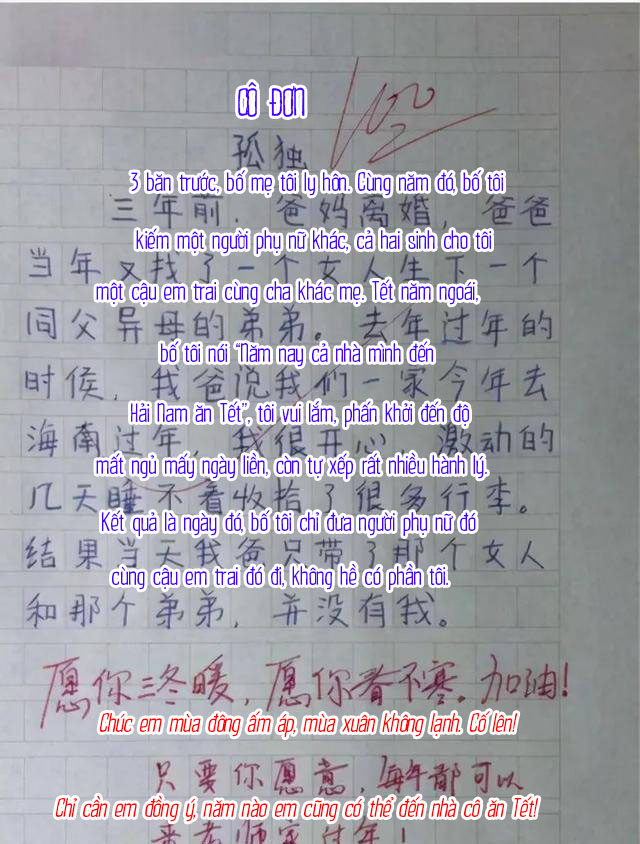 CÔ ĐƠN
100
孤独
3 băn trước, bố mẹ tôi ly hôn. Cùng năm đó, bố tôi
三年前，爸妈离婚，爸爸
kiếm một người phụ nữ khác, cả hai sinh cho tôi
当年又找了一个女人生下一个
một cậu em trai cùng cha khác mẹ. Tết năm ngoái,
同父异母的弟弟。去年过年的
bố tôi nói “Năm nay cả nhà mình đến
时候，我爸说我们一家今年去
Hải Nam ăn Tết”, tôi vui lắm, phấn khởi đến độ
海南过年，我很开心，激动的
mất ngủ mấy ngày liền, còn tự xếp rất nhiều hành lý.
几天睡不着收拾了很多行李。
Kết quả là ngày đó, bố tôi chỉ đưa người phụ nữ đó
结果当天我爸只带了那个女人
cùng cậu em trai đó đi, không hề có phần tôi.
和那个弟弟，并没有我。
愿你三冬暖，愿你春不寒。加油！
Chúc em mùa đông ấm áp, mùa xuân không lạnh. Cố lên!
只要你愿意，每年都可以
Chỉ cần em đồng ý, năm nào em cũng có thể đến nhà cô ăn Tết!
来老师家过年！